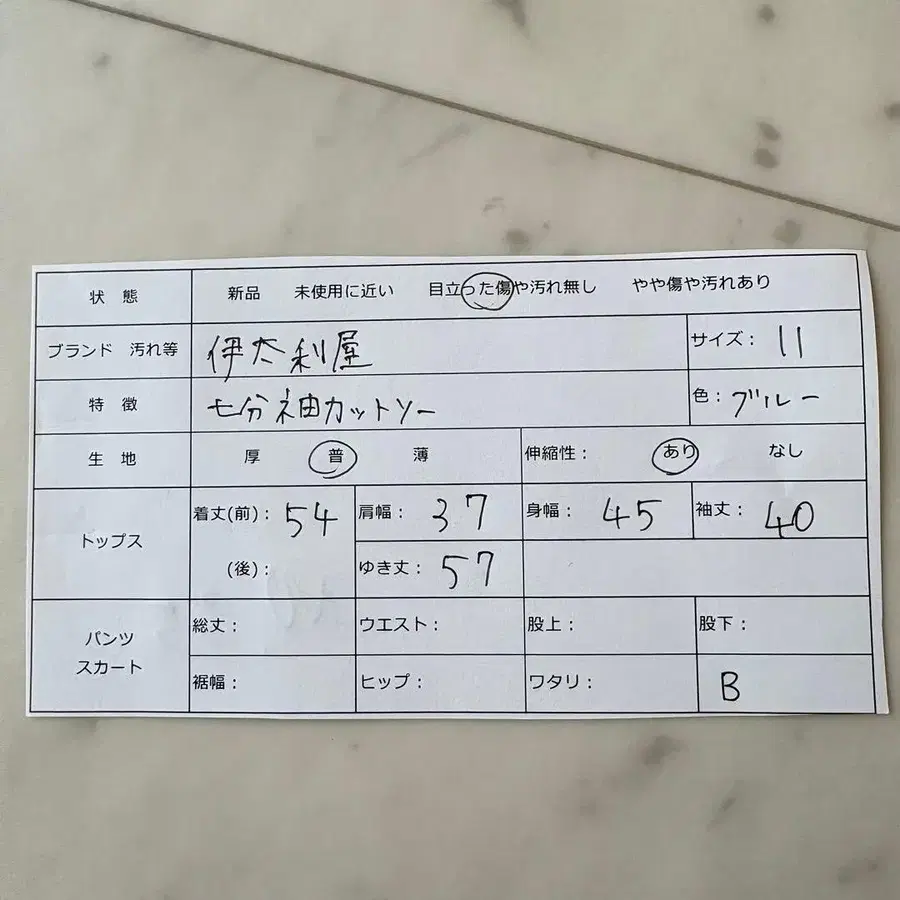 状 態 新品 未使用に近い 目立った傷や汚れ無し やや傷や汚れあり
ブランド 汚れ等 伊太利屋 サイズ: 11
特 徴 七分袖カットソー 色: ブルー
生 地 厚 普 薄 伸縮性: あり なし
トップス 着丈(前): 54 肩幅: 37 身幅: 45 袖丈: 40
(後): ゆき丈: 57
パンツ スカート 総丈: ウエスト: 股上: 股下:
裾幅: ヒップ: ワタリ: B